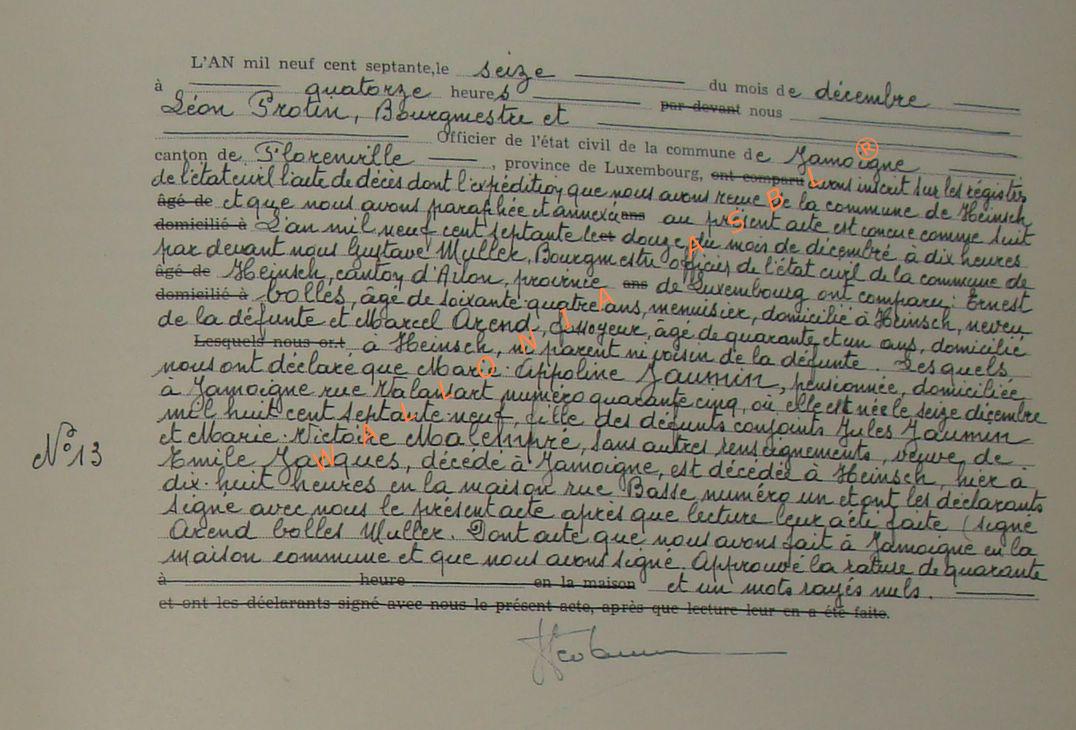 L'AN mil neuf cent septante, le seize du mois de décembre
à quatorze heures par devant nous
Léon Protin, Bourgmestre et
Officier de l'état civil de la commune de Jamoigne
canton de Florenville, province de Luxembourg, ont comparu avons inscrit sur les registres
de l'état civil l'acte de décès dont l'expédition que nous avons reçue de la commune de Heinsch
âgé de et que nous avons paraphée et annexée ans au présent acte est conçue comme suit
domicilié à L'an mil neuf cent septante le et douze du mois de décembre à dix heures
par devant nous Gustave Muller, Bourgmestre officier de l'état civil de la commune de
âgé de Heinsch, canton d'Arlon, province ans de Luxembourg ont comparu : Ernest
domicilié à Colles, âgé de soixante-quatre ans, menuisier, domicilié à Heinsch, neveu
de la défunte et Marcel Arend, fossoyeur, âgé de quarante et un ans, domicilié
Lesquels nous ont à Heinsch, ni parent ni voisin de la défunte. Lesquels
nous ont déclaré que Marie-Appoline Jaumin, pensionnée, domiciliée
à Jamoigne rue Walansart numéro quarante cinq, où elle est née le seize décembre
mil huit cent septante neuf, fille des défunts conjoints Jules Jaumin
N° 13
et Marie-Victoire Malempré, sans autres renseignements, veuve de
Emile Jacques, décédé à Jamoigne, est décédée à Heinsch, hier à
dix-huit heures en la maison rue Basse numéro un et ont les déclarants
signé avec nous le présent acte après que lecture leur a été faite (signé
Arend Colles Muller. Dont acte que nous avons fait à Jamoigne en la
maison commune et que nous avons signé. Approuvé la rature de quarante
à heure en la maison et un mots rayés nuls.
et ont les déclarants signé avec nous le présent acte, après que lecture leur en a été faite.
WALLONIA ASBL ®